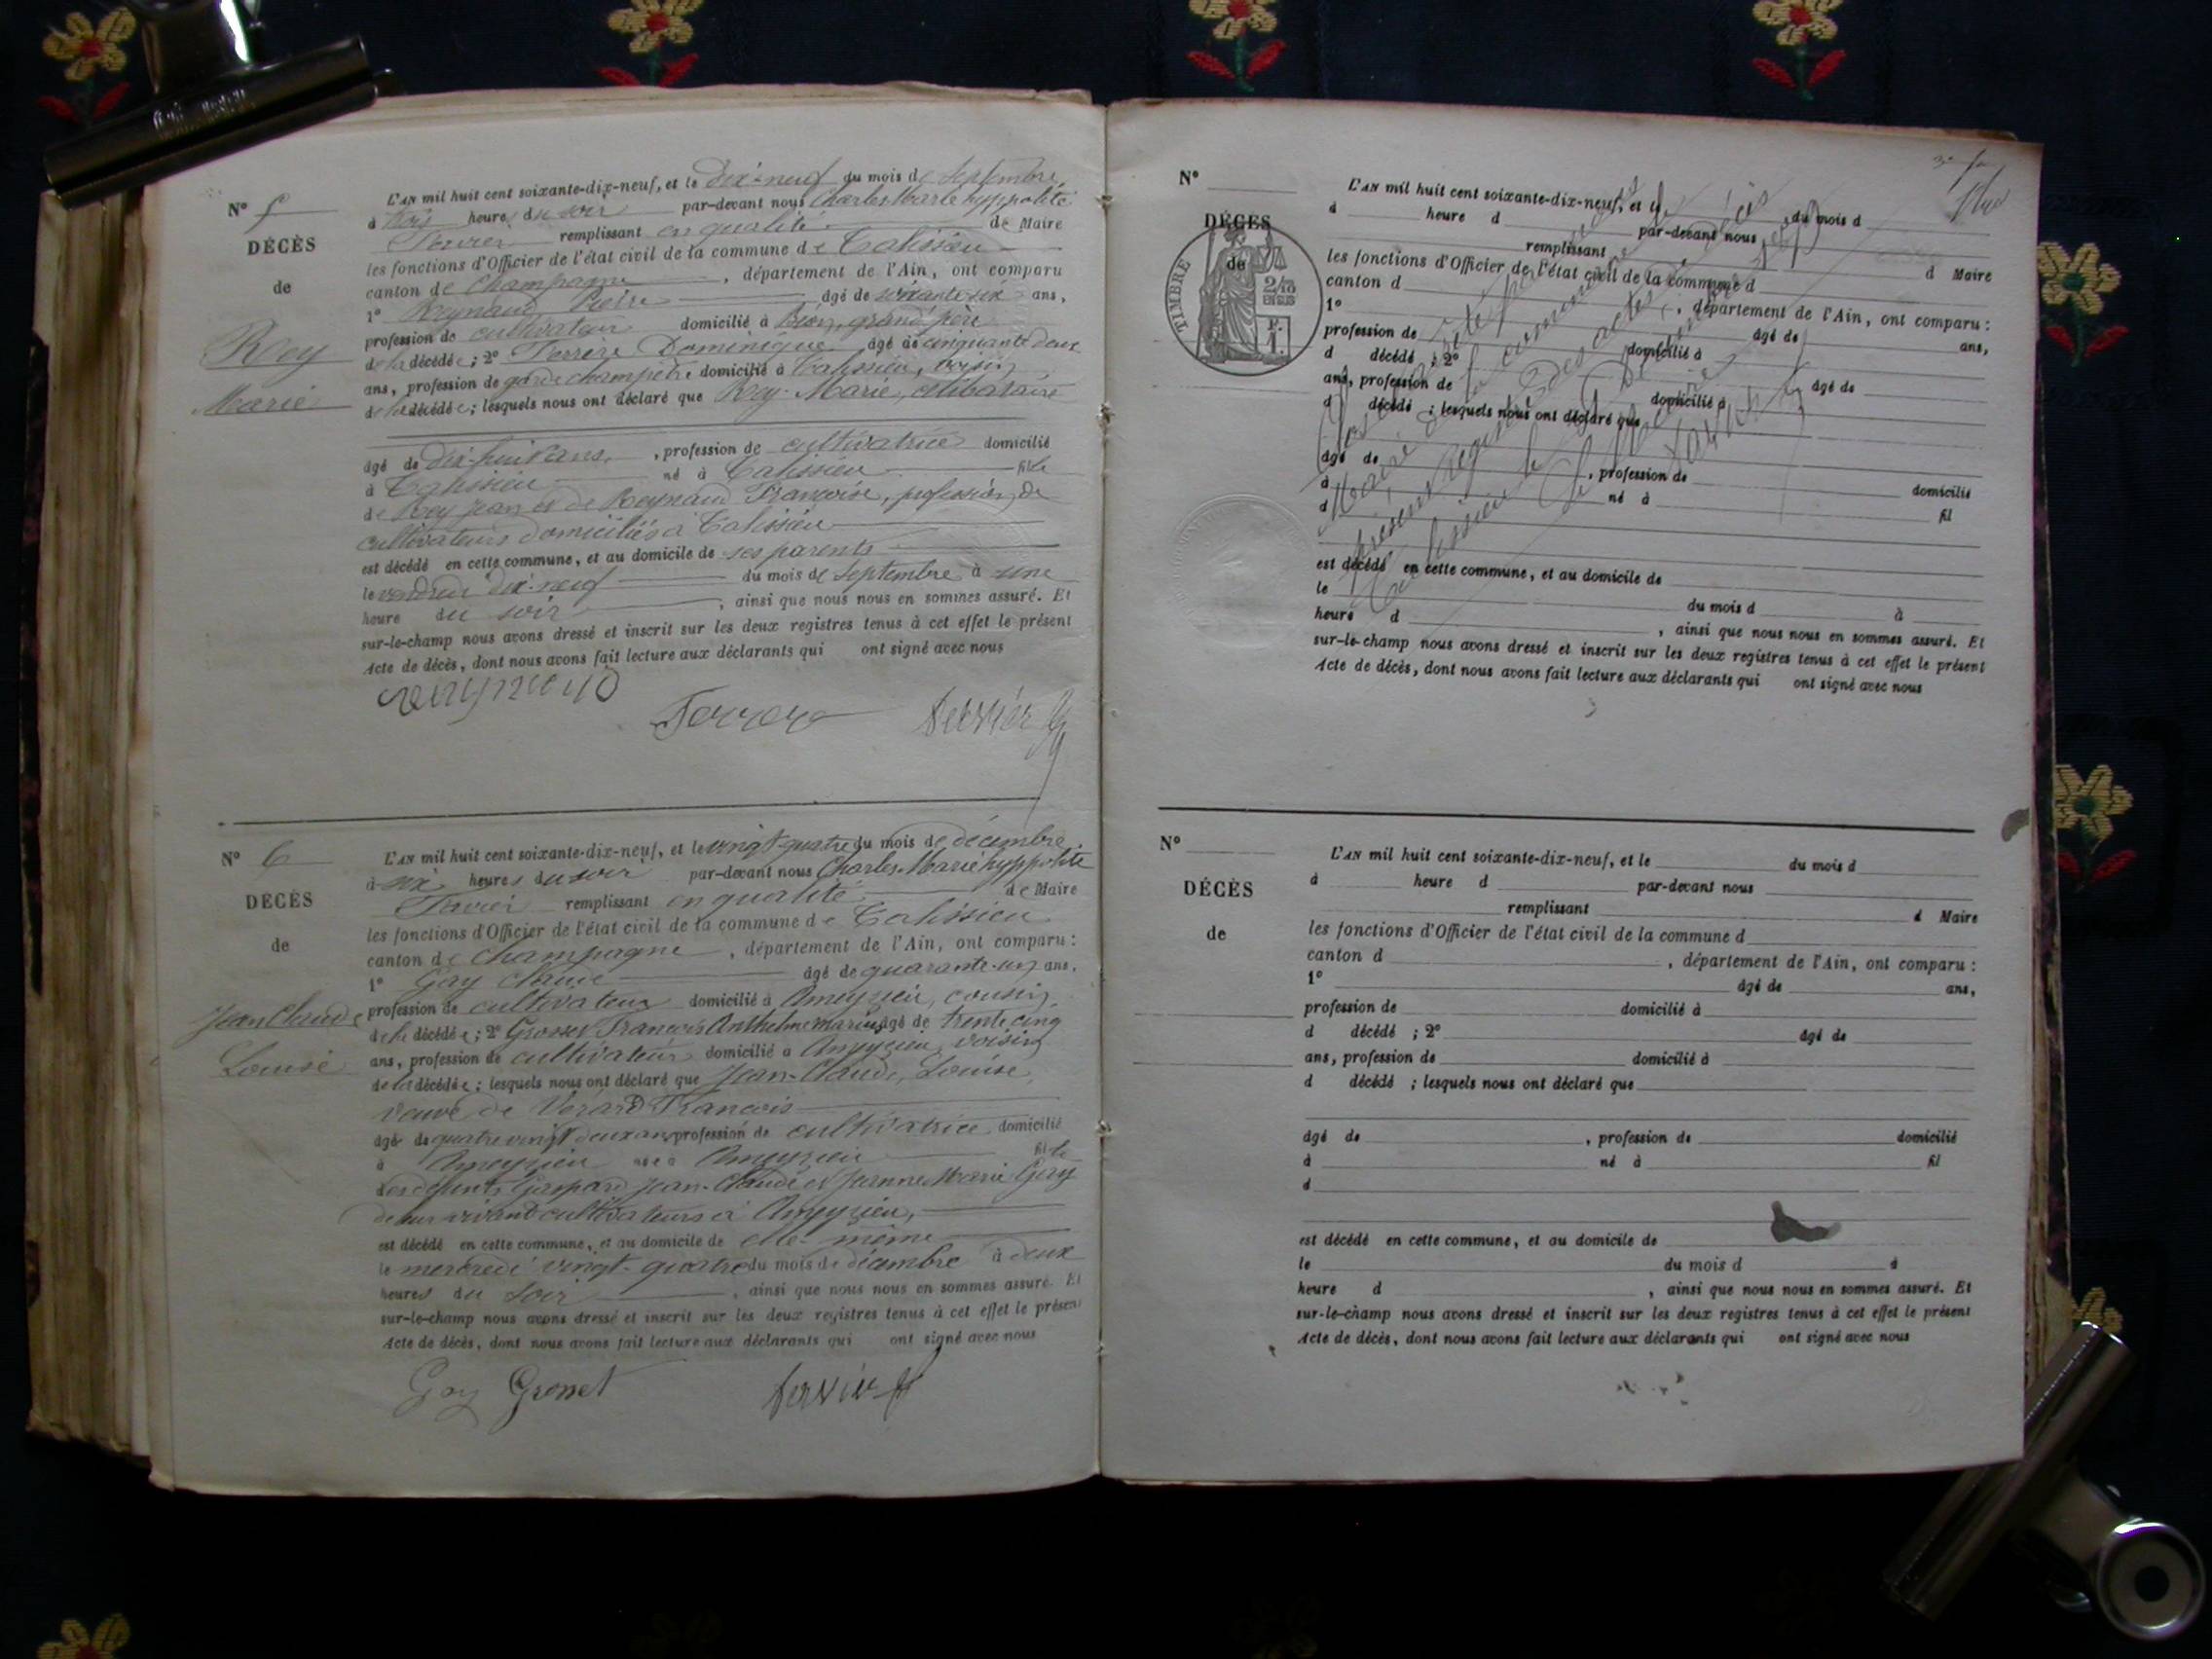 N° 5
DÉCÈS
de
Rey
Marie
L'AN mil huit cent soixante-dix-neuf, et le dix-neuf du mois de septembre
à trois heures du soir par-devant nous Charles Marie hyppolite
Servier remplissant en qualité de Maire
les fonctions d'Officier de l'état civil de la commune de Talissieu
canton de Champagne, département de l'Ain, ont comparu
1° Reynaud Pierre âgé de soixante six ans,
profession de cultivateur domicilié à Béon, grand père
de la décédée ; 2° Ferrère Dominique âgé de cinquante deux
ans, profession de garde champêtre domicilié à Talissieu, voisin
de la décédée ; lesquels nous ont déclaré que Rey Marie, célibataire
âgé de dix-huit ans, profession de cultivatrice domicilié
à Talissieu né à Talissieu fille
de Rey Jean et de Reynaud Françoise, profession de
cultivateurs domiciliés à Talissieu
est décédé en cette commune, et au domicile de ses parents
le vendredi dix-neuf du mois de septembre à une
heure du soir, ainsi que nous nous en sommes assuré. Et
sur-le-champ nous avons dressé et inscrit sur les deux registres tenus à cet effet le présent
Acte de décès, dont nous avons fait lecture aux déclarants qui ont signé avec nous
N° 6
DÉCÈS
de
Jean Claude
Louise
L'AN mil huit cent soixante-dix-neuf, et le vingt-quatre du mois de décembre
à six heures du soir par-devant nous Charles Marie hyppolite
Servier remplissant en qualité de Maire
les fonctions d'Officier de l'état civil de la commune de Talissieu
canton de Champagne, département de l'Ain, ont comparu :
1° Gay Claude âgé de quarante-un ans,
profession de cultivateur domicilié à Ameyzieu, cousin
de la décédée ; 2° Grosset François Anthelme marius âgé de trente cinq
ans, profession de cultivateur domicilié à Ameyzieu, voisin
de la décédée ; lesquels nous ont déclaré que Jean-Claude, Louise,
veuve de Verard François
âgé de quatre vingt deux ans profession de cultivatrice domicilié
à Ameyzieu née à Ameyzieu fille
des défunts Gaspard Jean-Claude et Jeanne Marie Gay
de leur vivant cultivateurs à Ameyzieu,
est décédé en cette commune, et au domicile de elle-même
le mercredi vingt-quatre du mois de décembre à deux
heures du soir, ainsi que nous nous en sommes assuré. Et
sur-le-champ nous avons dressé et inscrit sur les deux registres tenus à cet effet le présent
Acte de décès, dont nous avons fait lecture aux déclarants qui ont signé avec nous
Gay Grosset Servier
N°
DÉCÈS
de
TIMBRE
2/10
EN SUS
L'AN mil huit cent soixante-dix-neuf, et le du mois d
à heure d par-devant nous
remplissant d Maire
les fonctions d'Officier de l'état civil de la commune d
canton d , département de l'Ain, ont comparu :
1° âgé de ans,
profession de domicilié à
d décédé ; 2° âgé de
ans, profession de domicilié à
d décédé ; lesquels nous ont déclaré que
âgé de , profession de domicilié
à né à fil
d
est décédé en cette commune, et au domicile de
le du mois d à
heure d , ainsi que nous nous en sommes assuré. Et
sur-le-champ nous avons dressé et inscrit sur les deux registres tenus à cet effet le présent
Acte de décès, dont nous avons fait lecture aux déclarants qui ont signé avec nous
N°
DÉCÈS
de
L'AN mil huit cent soixante-dix-neuf, et le du mois d
à heure d par-devant nous
remplissant d Maire
les fonctions d'Officier de l'état civil de la commune d
canton d , département de l'Ain, ont comparu :
1° âgé de ans,
profession de domicilié à
d décédé ; 2° âgé de
ans, profession de domicilié à
d décédé ; lesquels nous ont déclaré que
âgé de , profession de domicilié
à né à fil
d
est décédé en cette commune, et au domicile de
le du mois d à
heure d , ainsi que nous nous en sommes assuré. Et
sur-le-champ nous avons dressé et inscrit sur les deux registres tenus à cet effet le présent
Acte de décès, dont nous avons fait lecture aux déclarants qui ont signé avec nous